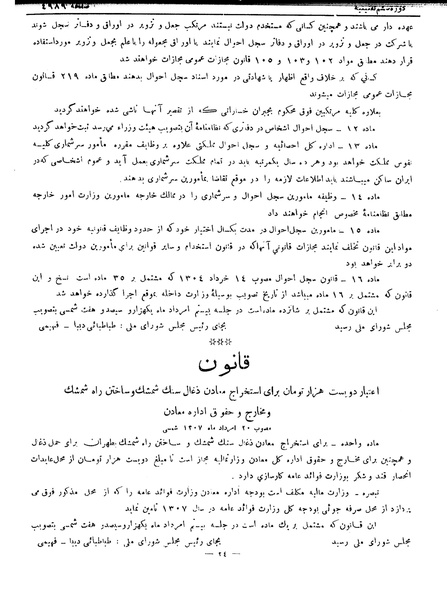 دوره ششم تقنینیه
صفحه ۴۹۸۹
عهده دار می باشند و همچنین کسانی که مستخدم دولت نیستند مرتکب جعل و تزویر در اوراق و دفاتر سجل شوند
یا شرکت در جعل و تزویر در اوراق و دفاتر سجل احوال نمایند یا اوراق مجعوله را با علم بجعل و تزویر مورد استفاده
قرار دهند مطابق مواد ۱۰۲ و ۱۰۳ و ۱۰۵ قانون مجازات عمومی مجازات خواهند شد
کسانی که بر خلاف واقع اظهار یا شهادتی در مورد اسناد سجل احوال بدهند مطابق ماده ۲۱۹ قانون
مجازات عمومی مجازات میشوند
بعلاوه کلیه مرتکبین فوق محکوم بجبران خساراتی که از تقصیر آنها ناشی شده خواهند گردید
ماده ۱۲ – سجل احوال اشخاص در دفتری که نظامنامهٔ آن بتصویب هیئت وزراء میرسد ثبت خواهد گردید
ماده ۱۳ – اداره کل احصائیه و سجل احوال مملکتی علاوه بر وظایف مقرره مأمور سرشماری کلیه
نفوس مملکت خواهد بود و هر ده سال یکمرتبه باید در تمام مملکت سرشماری بعمل آید و عموم اشخاصی که در
ایران ساکن میباشند باید اطلاعات لازمه را در موقع تقاضا بمأمورین سرشماری بدهند.
ماده ۱۴ – وظیفه مأمورین سجل احوال و سرشماری را در ممالک خارجه مامورین وزارت امور خارجه
مطابق نظامنامهٔ مخصوص انجام خواهند داد
ماده ۱۵ – مامورین سجل احوال در مدت یکسال اختیار خود که از حدود وظایف قانونیه خود در اجرای
مواد این قانون تخلف نمایند مجازات قانونی آنها که در قانون استخدام و سایر قوانین برای مأمورین دولت تعیین شده
دو برابر خواهد بود
ماده ۱۶ – قانون سجل احوال مصوب ۱۴ خرداد ۱۳۰۴ که مشتمل بر ۳۵ ماده است نسخ و این
قانون که مشتمل بر ۱۶ ماده میباشد از تاریخ تصویب بوسیلهٔ وزارت داخله بموقع اجرا گذارده خواهد شد
این قانون که مشتمل بر شانزده ماده است در جلسه بیستم امرداد ماه یکهزار و سیصد و هفت شمسی بتصویب
مجلس شورای ملی رسید بجای رئیس مجلس شورای ملی : طباطبائی دیبا – فهیمی
***
قانون
اعتبار دویست هزار تومان برای استخراج معادن ذغال سنگ شمشک و ساختن راه شمشک
و مخارج و حقوق اداره معادن
مصوب ۲۰ امرداد ماه ۱۳۰۷ شمسی
ماده واحده – برای استخراج معادن ذغال سنگ شمشک و ساختن راه شمشک بطهران برای حمل ذغال
و همچنین برای مخارج و حقوق اداره کل معادن وزارت مالیه مجاز است تا مبلغ دویست هزار تومان از محل عایدات
انحصار قند و شکر بوزارت فوائد عامه کارسازی دارد.
تبصره – وزارت مالیه مکلف است بودجه اداره معادن وزارت فوائد عامه را که از محل مذکور فوق می
پردازد از محل صرفه جوئی بودجه کل وزارت فوائد عامه در سال ۱۳۰۷ تامین نماید
این قانون که مشتمل بر یک ماده است در جلسه بیستم امرداد ماه یکهزار و سیصد و هفت شمسی بتصویب
مجلس شورای ملی رسید بجای رئیس مجلس شورای ملی : طباطبائی دیبا – فهیمی
– ۲۴ –